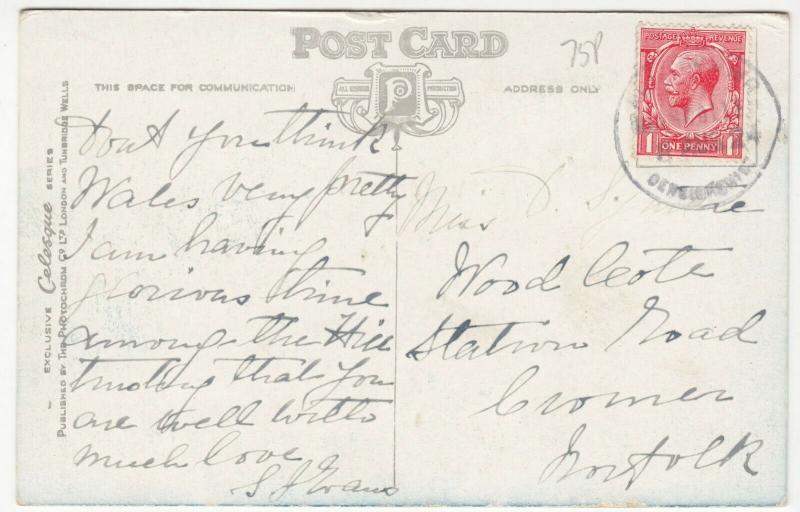 POST CARD
75P
THIS SPACE FOR COMMUNICATION
ADDRESS ONLY
POSTAGE REVENUE
1 ONE PENNY 1
EXCLUSIVE Celesque SERIES
PUBLISHED BY THE PHOTOCHROM Co LTD LONDON AND TUNBRIDGE WELLS
Dont you think
Wales very pretty
I am having
glorious time
among the Hills
that you
are well with
much love
S J Evans
Miss D.
Wood Cote
Station Road
Cromer
Norfolk